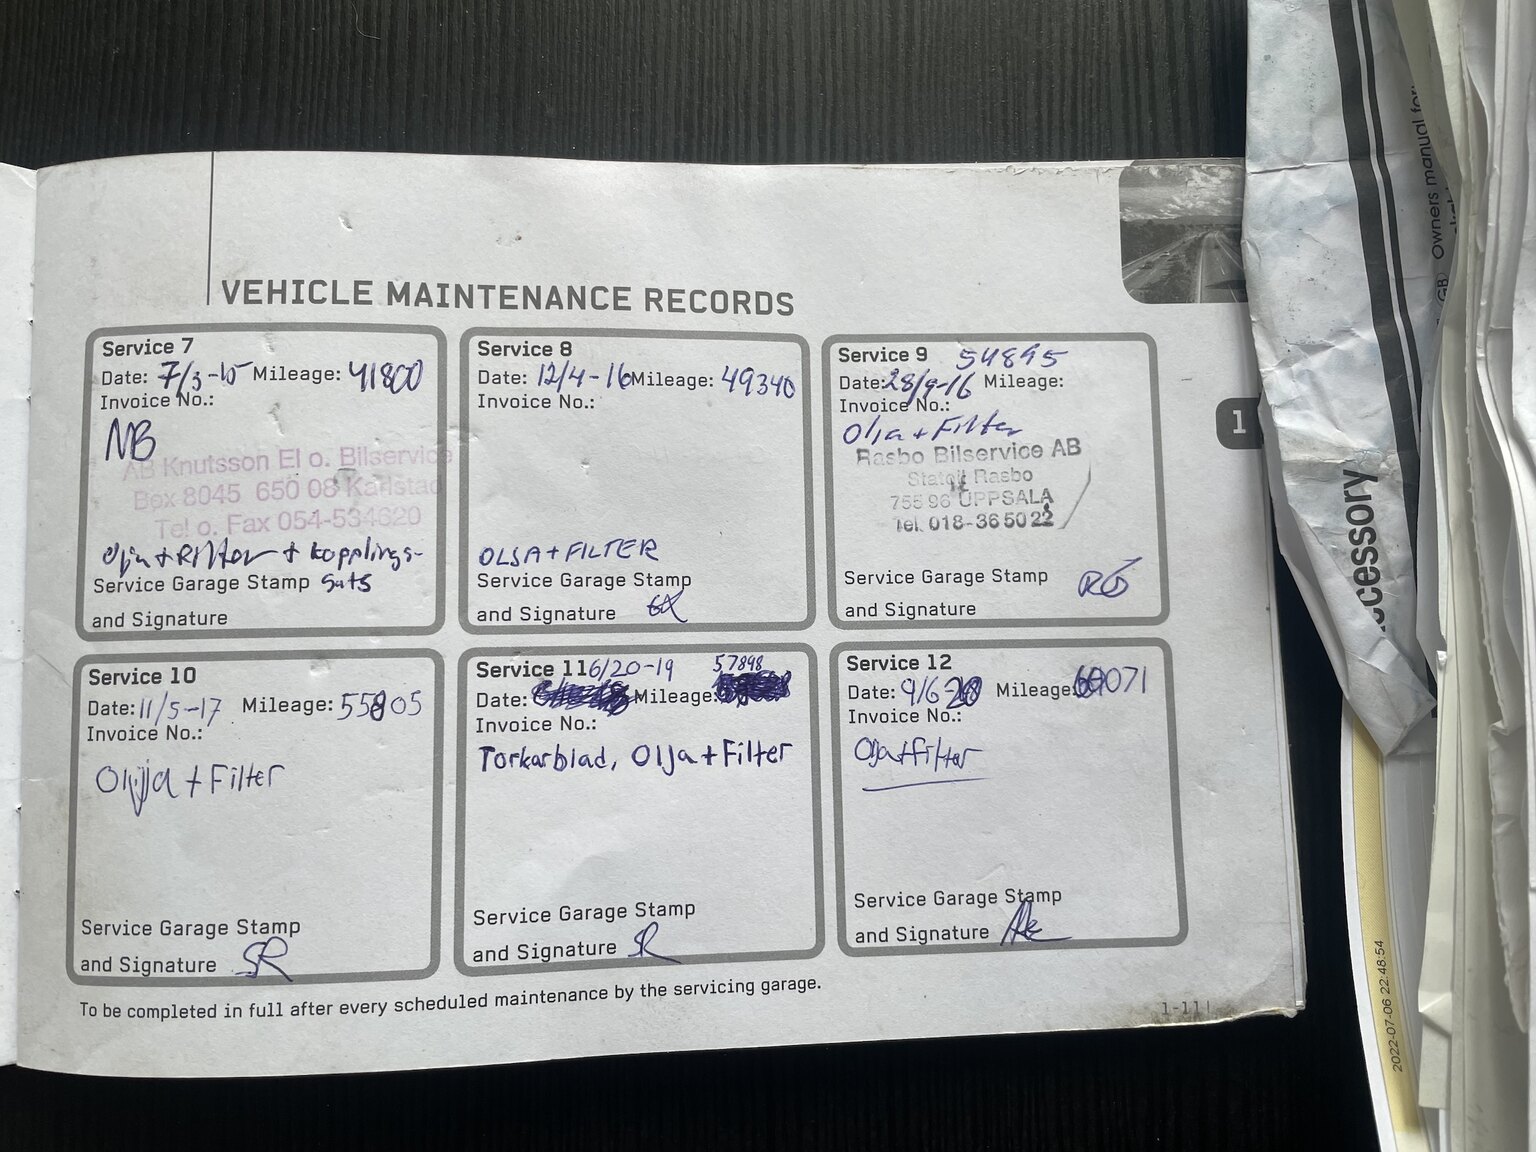 VEHICLE MAINTENANCE RECORDS
Service 7
Date: 7/3-15 Mileage: 41800
Invoice No.:
MB
AB Knutsson El o. Bilservice
Box 8045 650 08 Karlstad
Tel o. Fax 054-534620
Olja + Filter + kopplings-
Service Garage Stamp sats
and Signature
Service 8
Date: 12/4-16 Mileage: 49340
Invoice No.:
OLJA + FILTER
Service Garage Stamp
and Signature
Service 9 54895
Date: 28/9-16 Mileage:
Invoice No.:
Olja + Filter
Rasbo Bilservice AB
Statoil Rasbo
755 96 UPPSALA
Tel. 018-36 50 22
Service Garage Stamp
and Signature
Service 10
Date: 11/5-17 Mileage: 55805
Invoice No.:
Olja + Filter
Service Garage Stamp
and Signature SR
Service 11 6/20-19 57898
Date: Mileage:
Invoice No.:
Torkarblad, Olja + Filter
Service Garage Stamp
and Signature SR
Service 12
Date: 9/6-20 Mileage: 60071
Invoice No.:
Olja + filter
Service Garage Stamp
and Signature
To be completed in full after every scheduled maintenance by the servicing garage.
1-11
1
Accessory
GB Owners manual for
2022-07-06 22:48:54